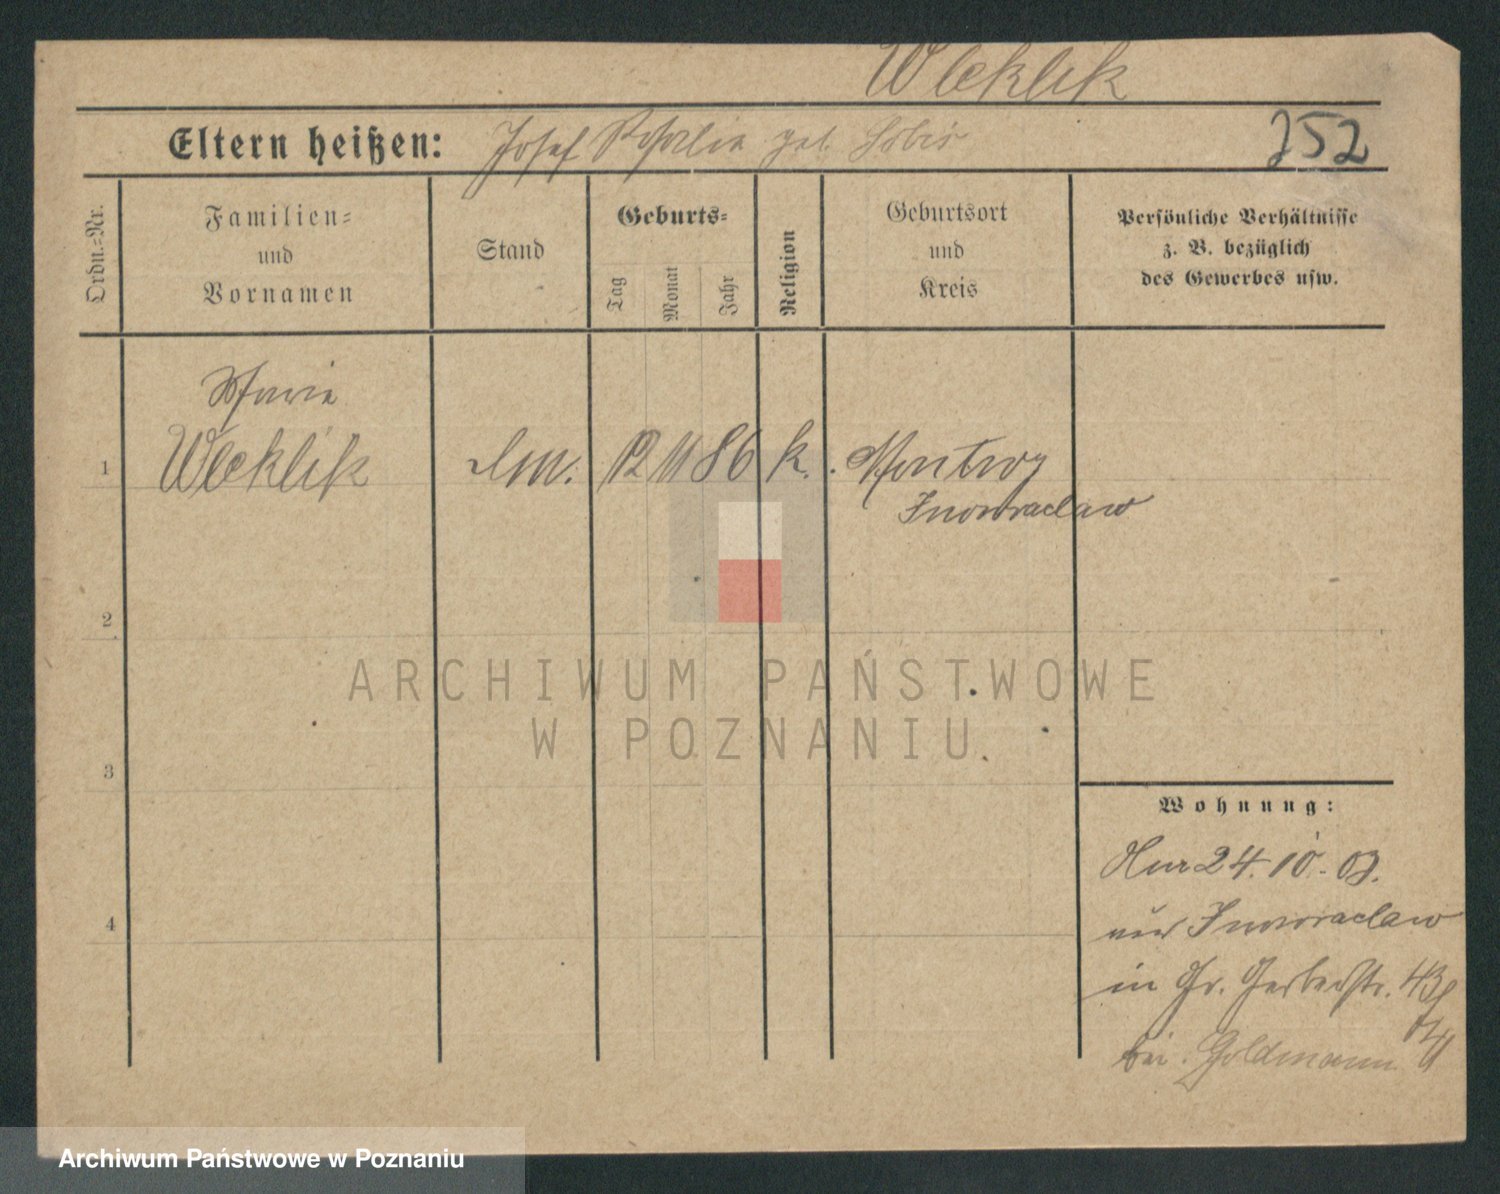 Wleklik
Eltern heißen: Josef Rosalia geb. 
252
Ordn.=Nr.
Familien=
und
Vornamen
Stand
Geburts=
Tag
Monat
Jahr
Religion
Geburtsort
und
Kreis
Persönliche Verhältnisse
z. B. bezüglich
des Gewerbes usw.
Marie
1 Wleklik 12 11 86 k. Montwy
Inowraclaw
2
3
4
Wohnung:
24. 10. 03.
Inowraclaw
in Gr. Gerberstr. 43
bei Goldmann
ARCHIWUM PAŃSTWOWE
W POZNANIU
Archiwum Państwowe w Poznaniu